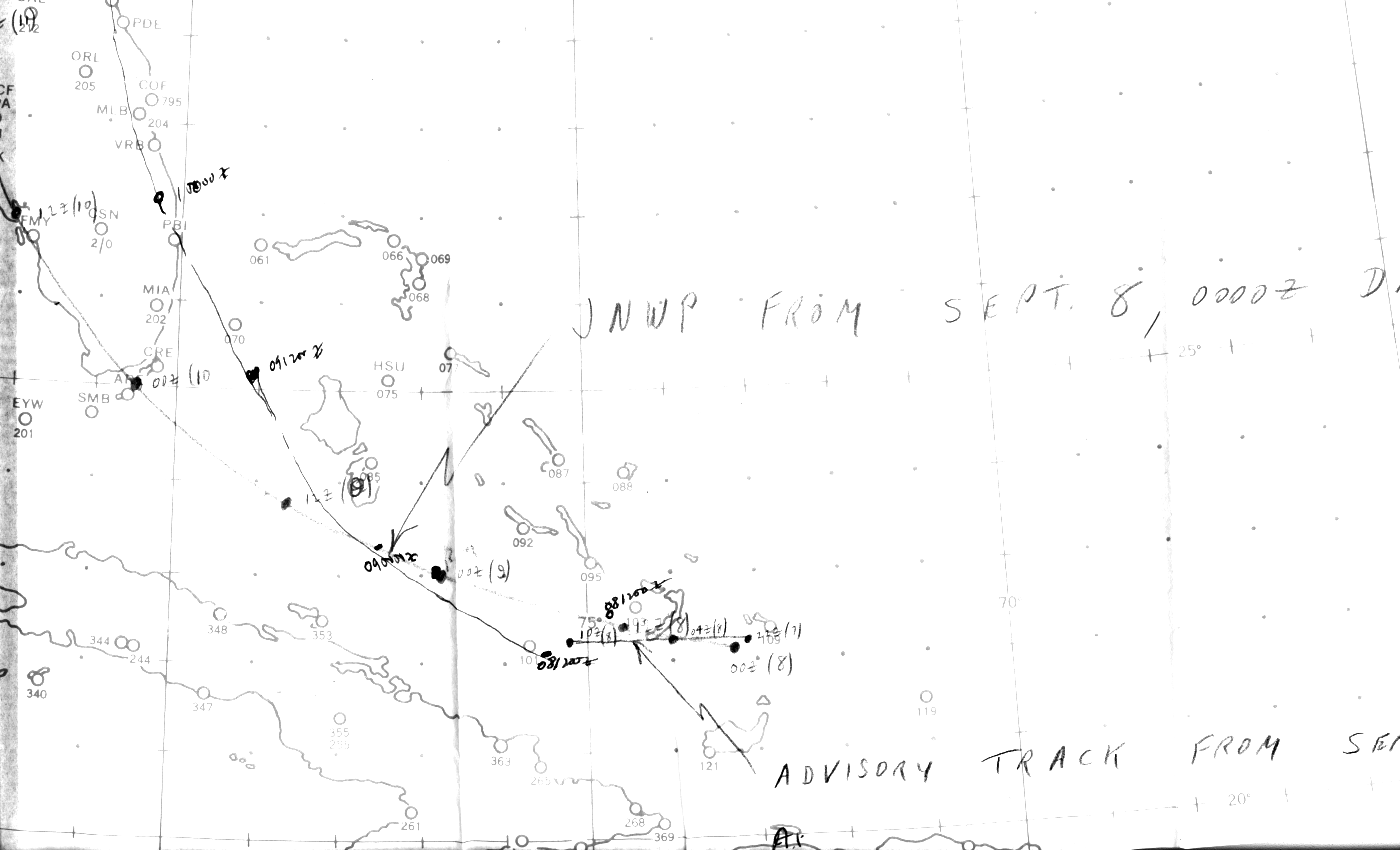 (1)
212
PDE
ORL
205
COF
795
MLB
204
VRB
100000Z
12Z (10)
FMY
GSN
2/0
PBI
061
066
069
068
MIA
202
070
JNWP FROM SEPT. 8, 0000Z
25°
CRE
091200Z
HSU
075
00Z (10
SMB
EYW
201
085
087
088
12Z (9)
092
090000Z
00Z (9)
095
081200Z
75°
70
348
353
344
244
10Z(8)
04Z(8)
00Z (8)
109
340
347
119
355
363
121
265
ADVISORY TRACK FROM
20°
261
268
369